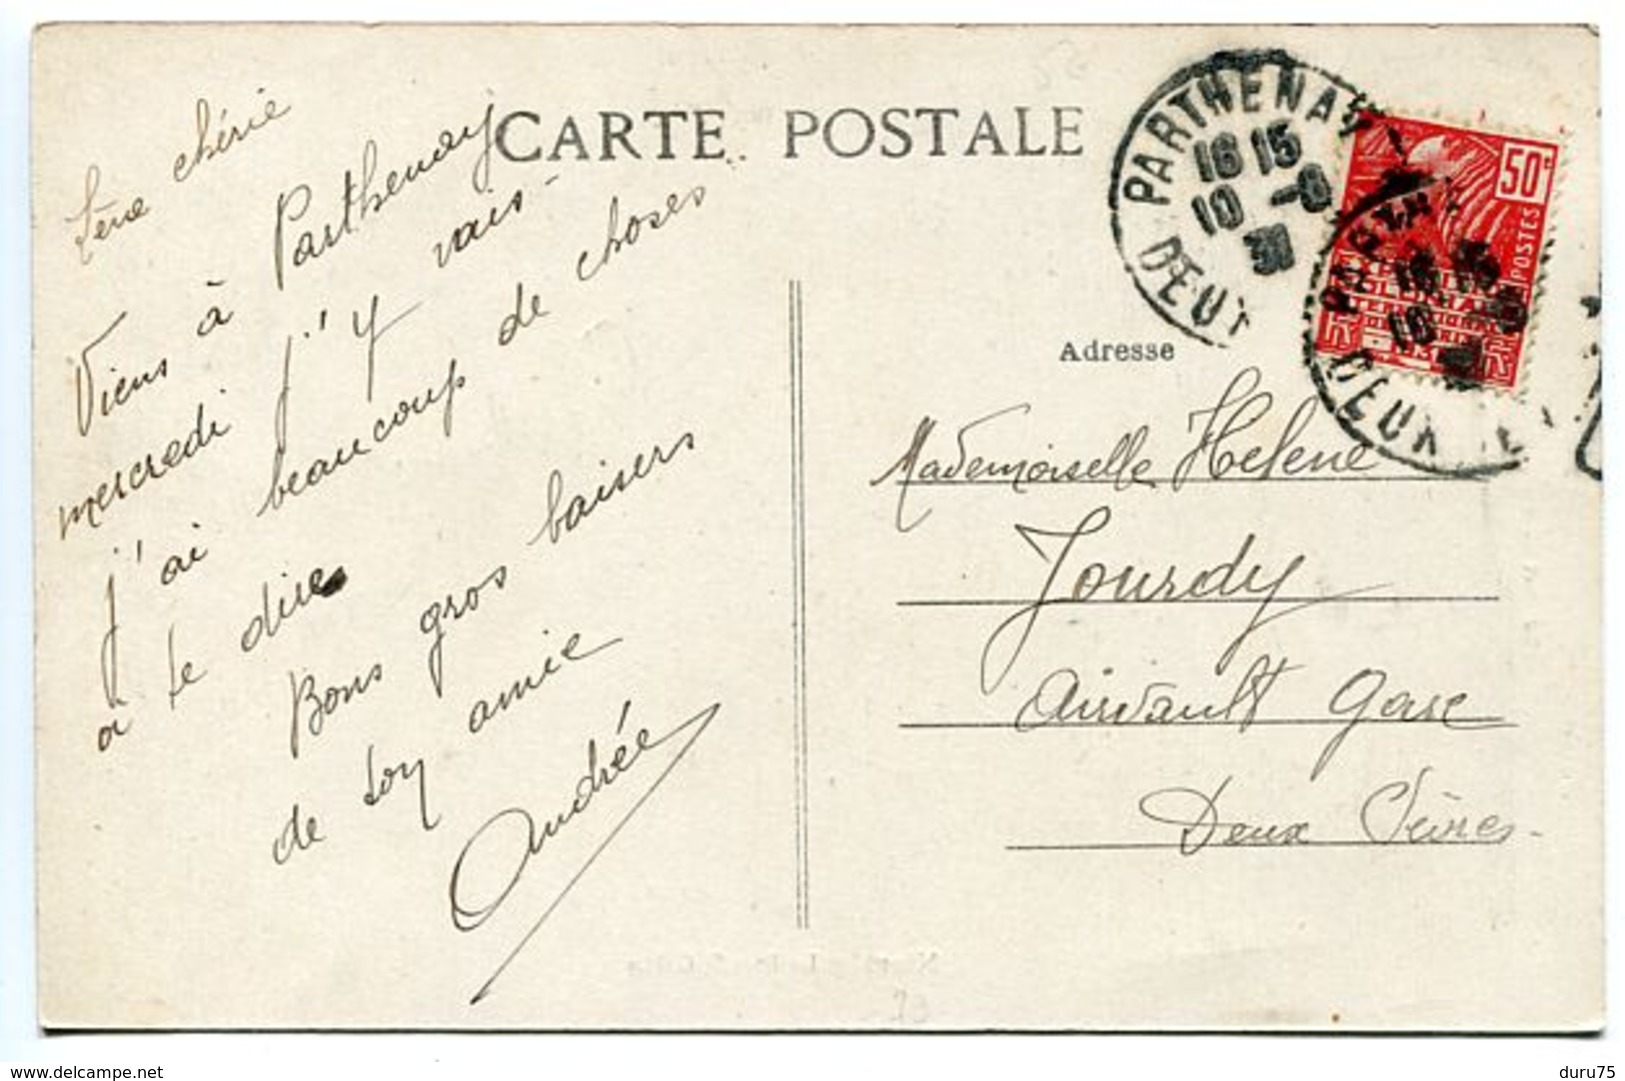 CARTE POSTALE
Lène chérie
Viens à Parthenay
mercredi j'y vais -
j'ai beaucoup de choses
à te dire
Bons gros baisers
de ton amie
Andrée
PARTHENAY
16 15
10 -8
31
DEUX
50c
POSTES
PARTHENAY
16 15
10
DEUX
Adresse
Mademoiselle Helene
Jourdy
Airvault Gare
Deux Sèvres -
delcampe.net
duru75